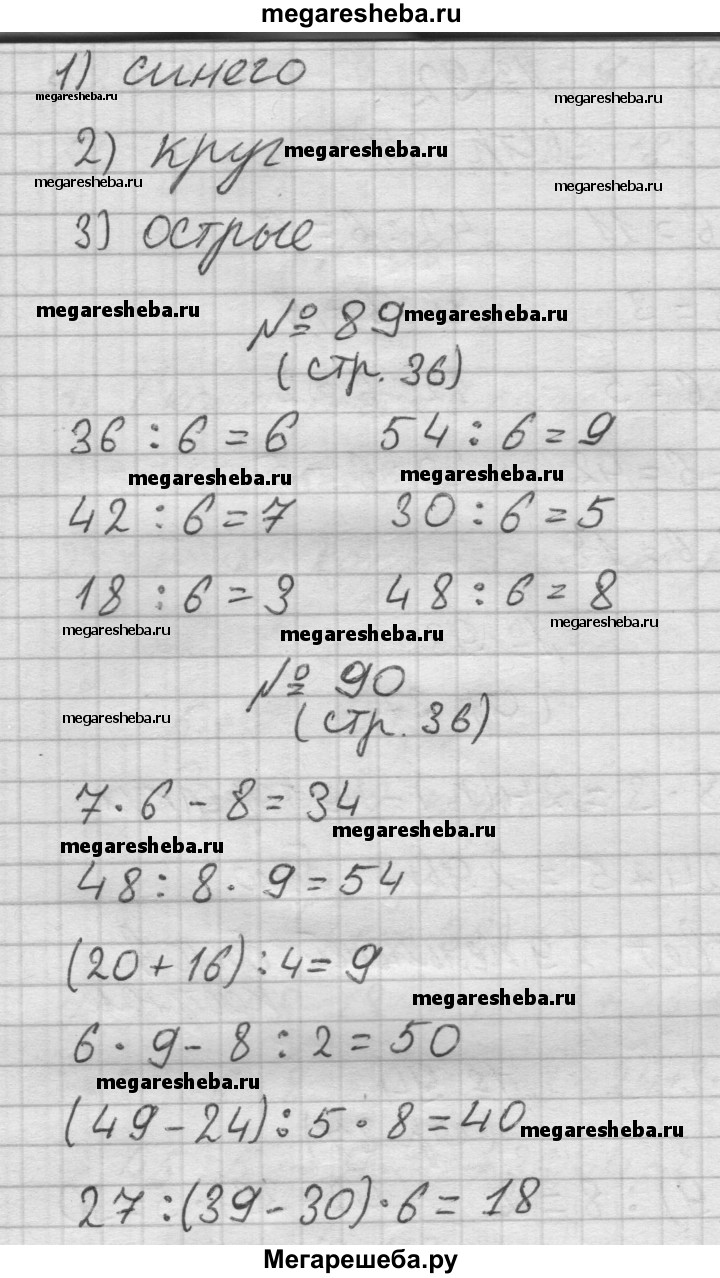 megaresheba.ru
1) синего
megaresheba.ru megaresheba.ru
2) круг megaresheba.ru
megaresheba.ru megaresheba.ru
3) острые
megaresheba.ru № 89 megaresheba.ru
(стр. 36)
36 : 6 = 6 54 : 6 = 9
megaresheba.ru megaresheba.ru
42 : 6 = 7 30 : 6 = 5
18 : 6 = 3 48 : 6 = 8
megaresheba.ru megaresheba.ru megaresheba.ru
№ 90
megaresheba.ru (стр. 36)
7 · 6 - 8 = 34
megaresheba.ru megaresheba.ru
48 : 8 · 9 = 54
(20 + 16) : 4 = 9
megaresheba.ru
6 · 9 - 8 : 2 = 50
megaresheba.ru
(49 - 24) : 5 · 8 = 40 megaresheba.ru
27 : (39 - 30) · 6 = 18
Мегарешеба.ру